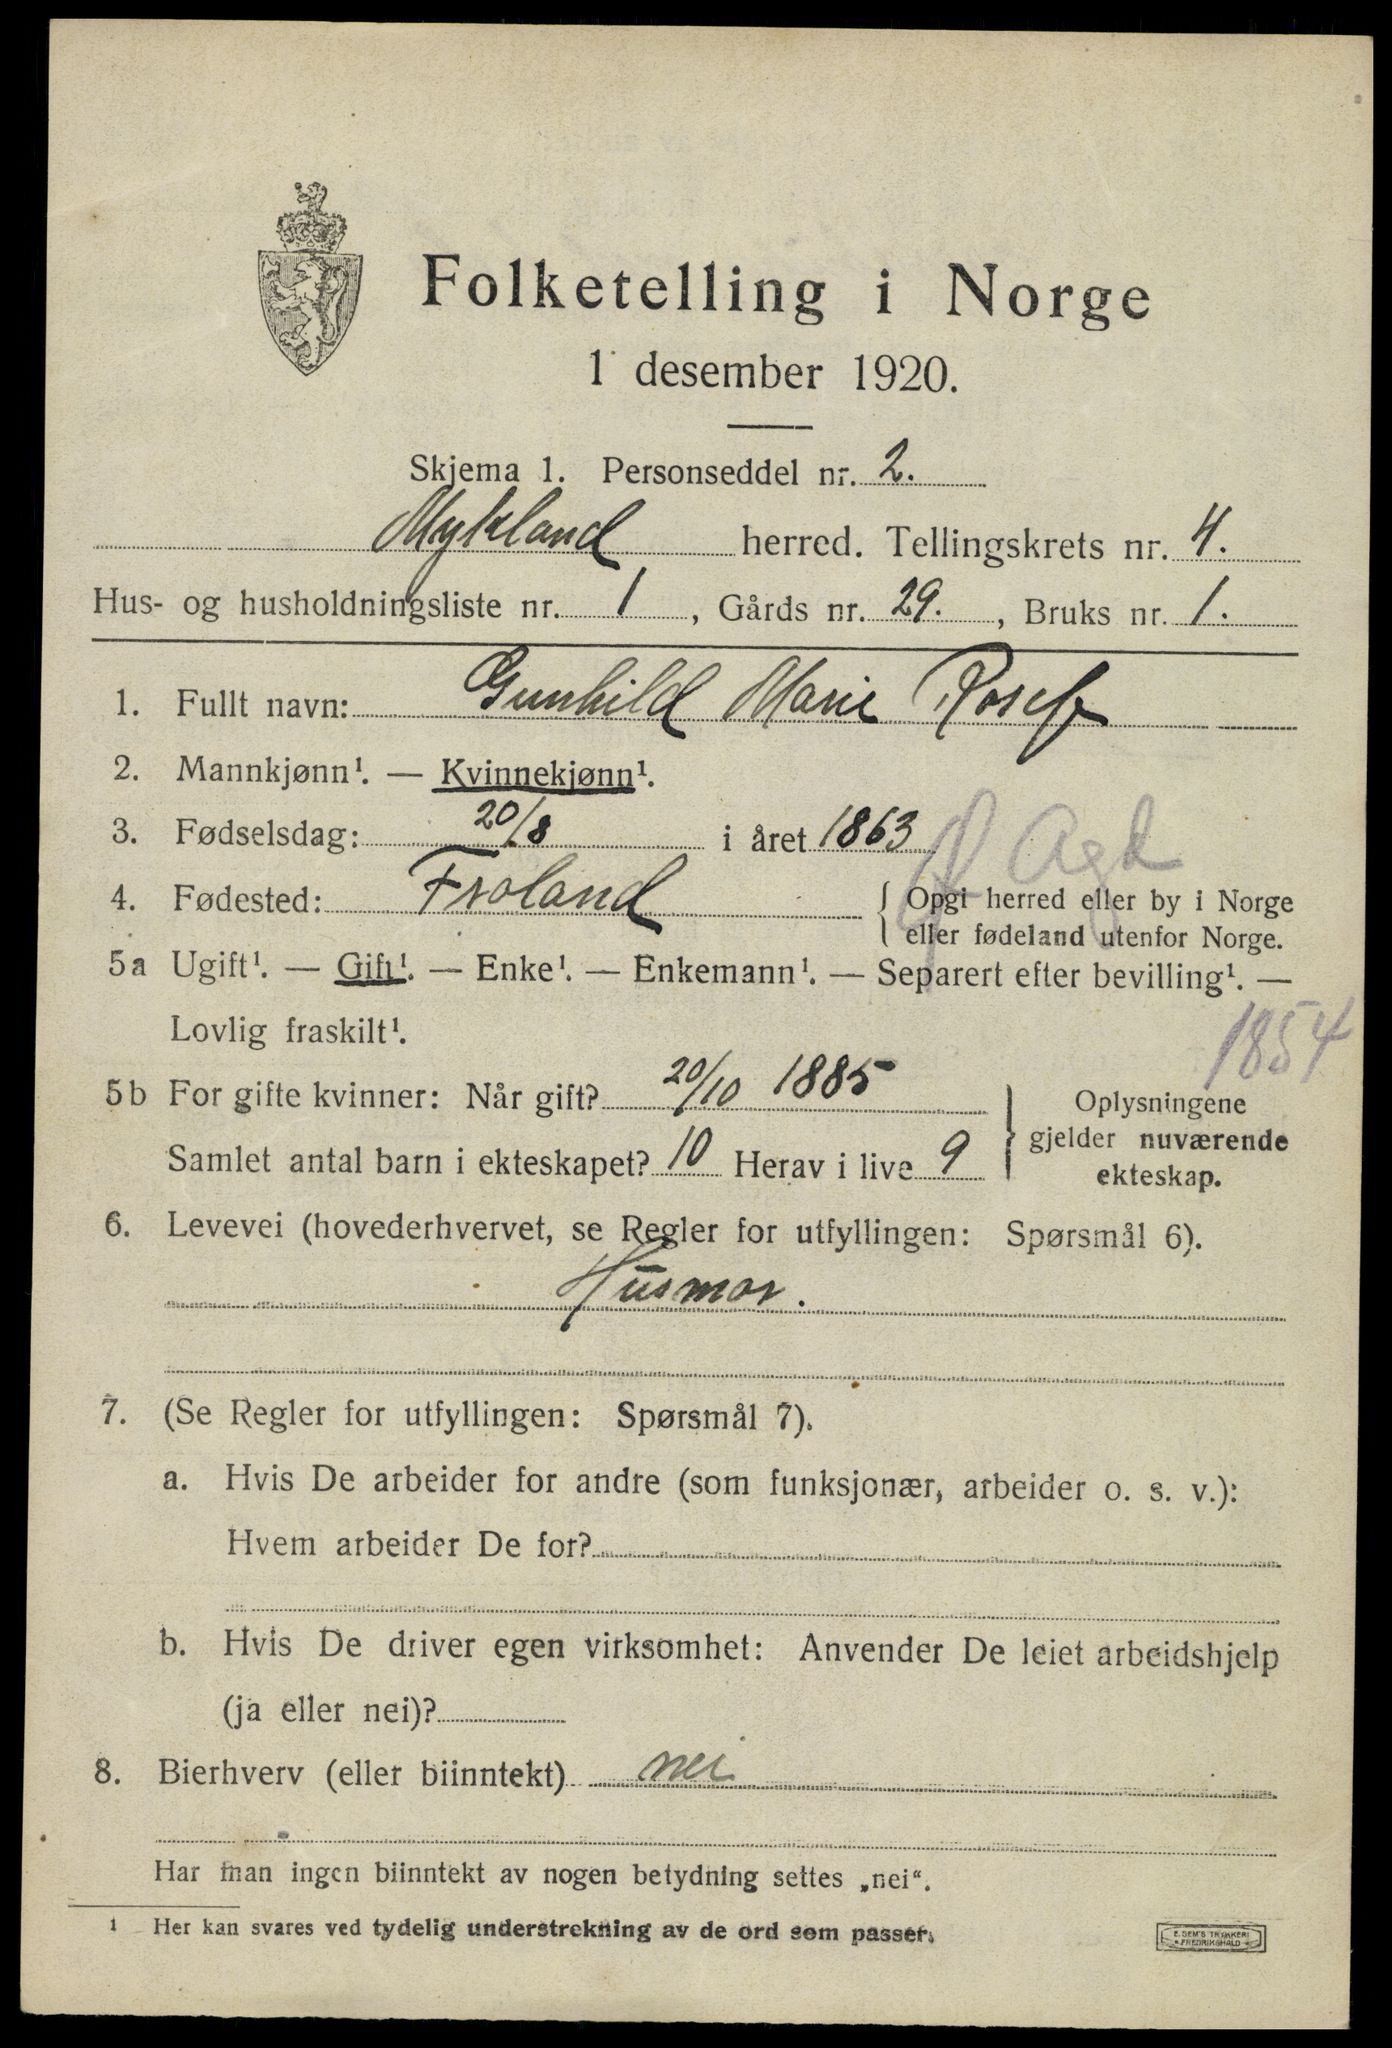 Folketelling i Norge
1 desember 1920.
Skjema 1. Personseddel nr. 2.
Mykland herred. Tellingskrets nr. 4.
Hus- og husholdningsliste nr. 1, Gårds nr. 29., Bruks nr. 1.
1. Fullt navn: Gunhild Marie
2. Mannkjønn¹. — Kvinnekjønn¹.
3. Fødselsdag: 20/8 i året 1863
4. Fødested: Froland { Opgi herred eller by i Norge
eller fødeland utenfor Norge.
5a Ugift¹. — Gift¹. — Enke¹. — Enkemann¹. — Separert efter bevilling¹. —
Lovlig fraskilt¹.
1854
5b For gifte kvinner: Når gift? 20/10 1885
Samlet antal barn i ekteskapet? 10 Herav i live 9
} Oplysningene
gjelder nuværende
ekteskap.
6. Levevei (hovederhvervet, se Regler for utfyllingen: Spørsmål 6).
Husmor.
7. (Se Regler for utfyllingen: Spørsmål 7).
a. Hvis De arbeider for andre (som funksjonær, arbeider o. s. v.):
Hvem arbeider De for?
b. Hvis De driver egen virksomhet: Anvender De leiet arbeidshjelp
(ja eller nei)?
8. Bierhverv (eller biinntekt) nei
Har man ingen biinntekt av nogen betydning settes „nei“.
¹ Her kan svares ved tydelig understrekning av de ord som passer.
E. SEM'S TRYKKERI
FREDRIKSHALD